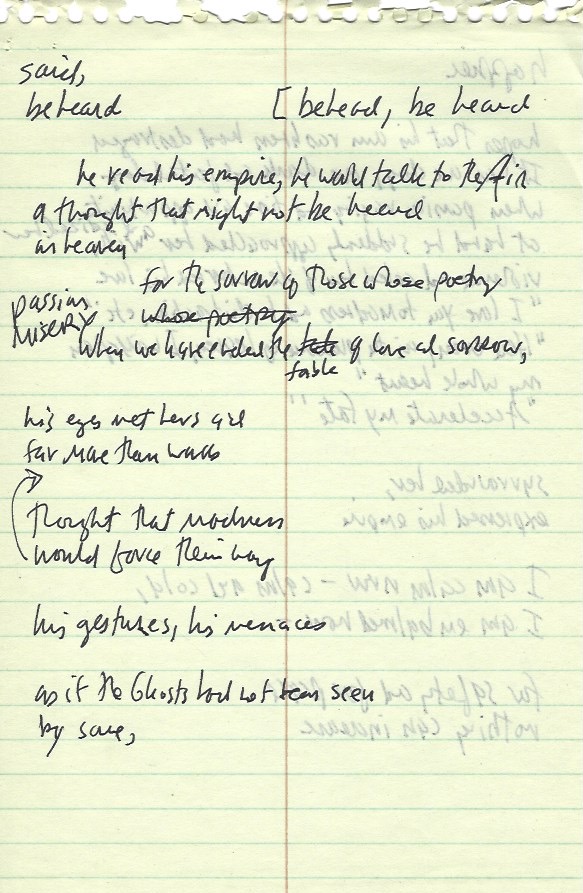 said,
beheard [ behead, be heard
he read his empire, he would talk to the fin
a thought that might not be heard
in heaven
for the sorrow of those whose poetry
passion whose poetry
misery
When we have ended the tale of love and sorrow,
fable
his eyes met hers and
far more than words
thought that madness
would force their way
his gestures, his menaces
as if the Ghosts had not been seen
by some,